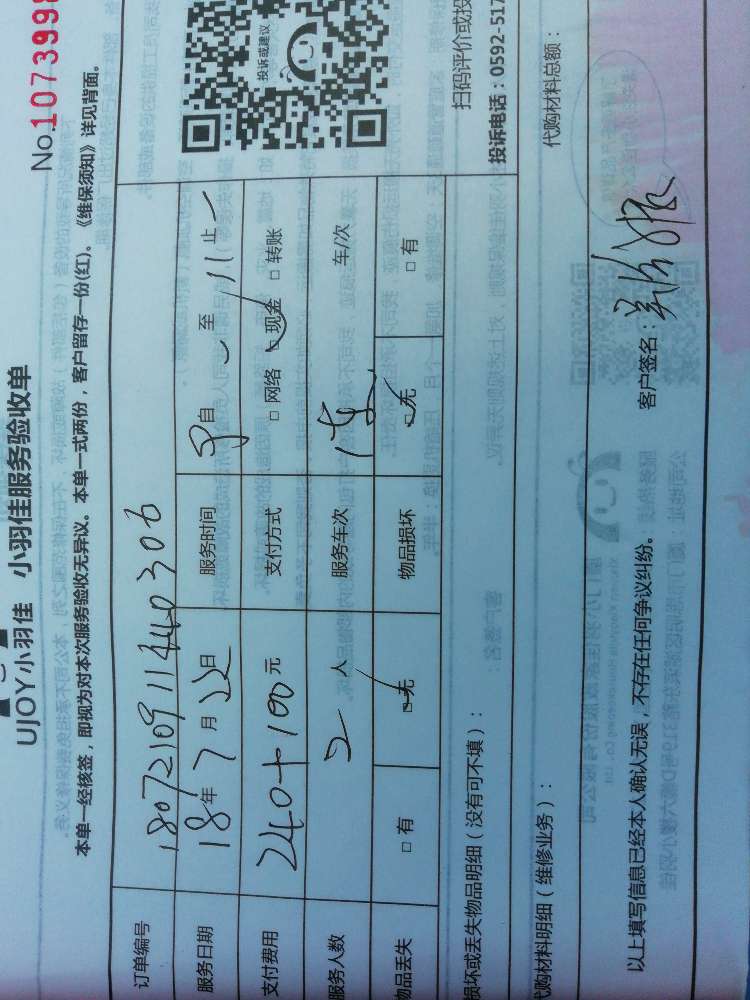 No.1073998
UJOY小羽佳 小羽佳服务验收单
本单一经核签，即视为对本次服务验收无异议。本单一式两份，客户留存一份(红)。《维保须知》详见背面。
订单编号 180721091144030306
服务日期 18年7月22日 服务时间 早自 至 11止
支付费用 240+100元 支付方式 □网络 □现金 □转账
服务人数 2人 服务车次 车/次
物品丢失 □有 □无 物品损坏 □无 □有
损坏或丢失物品明细（没有可不填）：
代购材料明细（维修业务）： 代购材料总额：
以上填写信息已经本人确认无误，不存在任何争议纠纷。 客户签名：
投诉或建议
扫码评价或投
投诉电话：0592-517